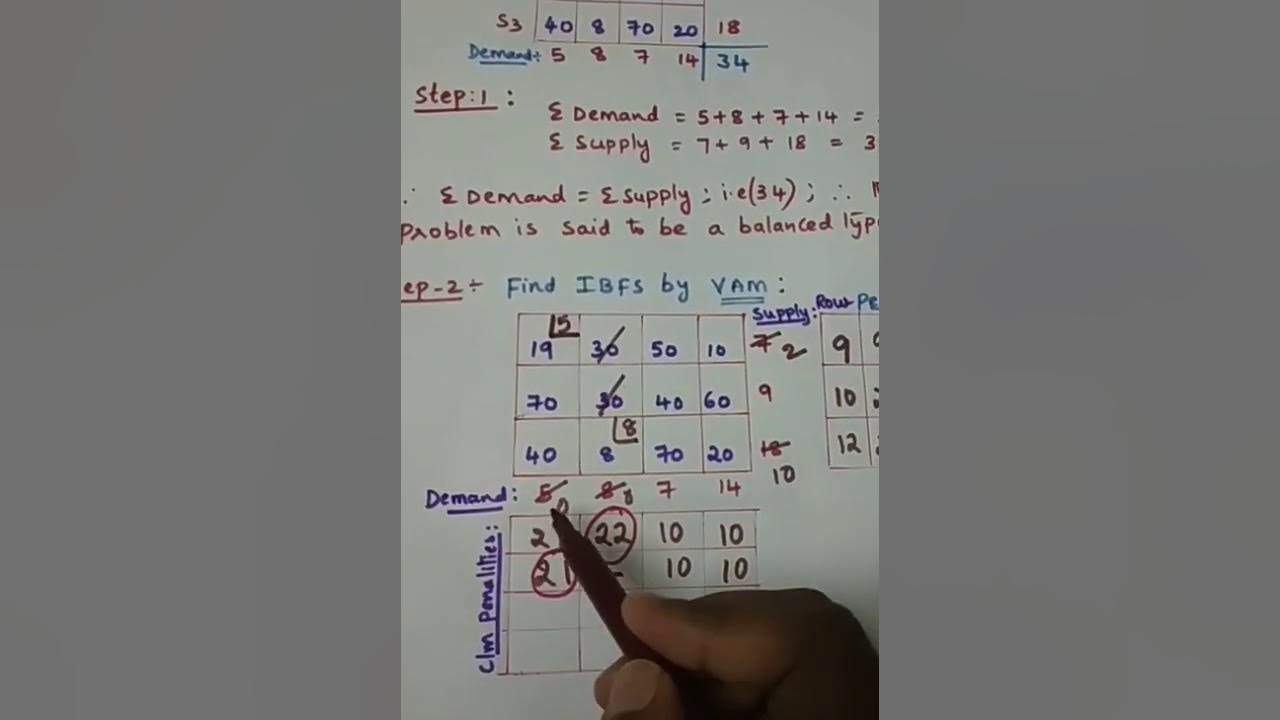 S3 40 8 70 20 18
Demand: 5 8 7 14 34
Step:1 :
Σ Demand = 5+8+7+14 =
Σ Supply = 7+9+18 = 3
∴ Σ Demand = Σ Supply ; i.e(34) ; ∴
Problem is said to be a balanced Type
ep-2 ÷ Find IBFS by VAM :
Supply: Row Pe
19 5 30 50 10 7 2 9
70 30 40 60 9 10
40 8 8 70 20 18 10 12
Demand: 5 0 8 7 14
Clm Penalities:
22 10 10
21 - 10 10